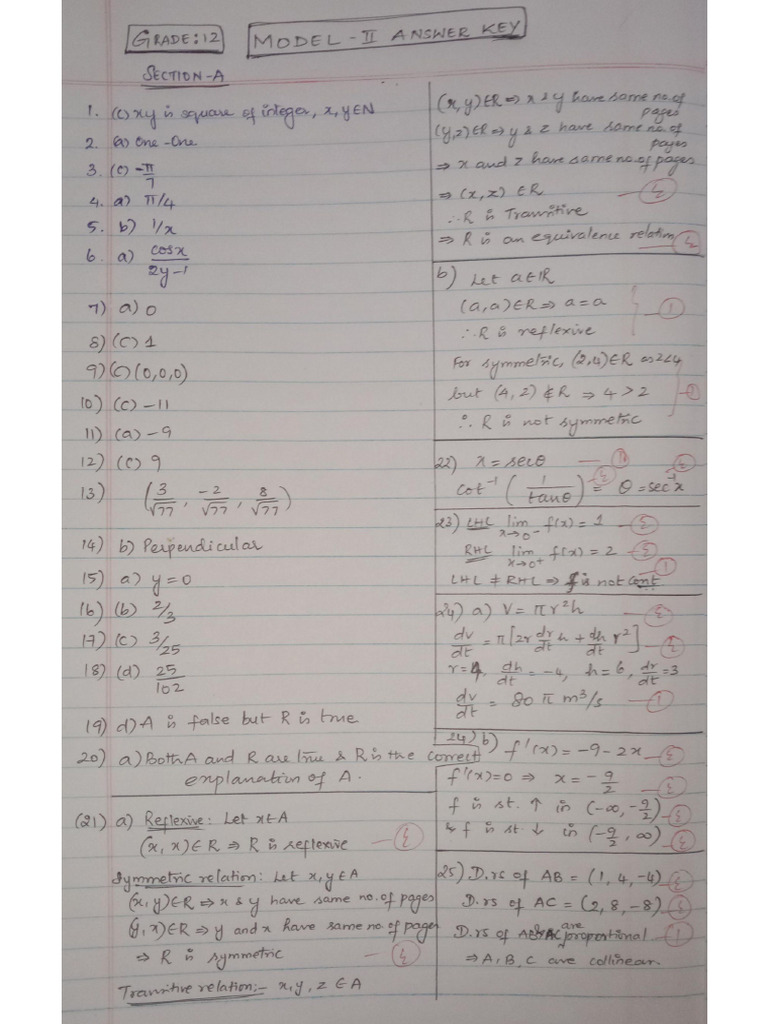 GRADE: 12
MODEL - II ANSWER KEY
SECTION-A
1. (c) xy is square of integer, x, y ∈ N
2. (a) One-One
3. (c) -π/7
4. a) π/4
5. b) 1/x
6. a) cosx / 2y-1
7) a) 0
8) (c) 1
9) (c) (0,0,0)
10) (c) -11
11) (a) -9
12) (c) 9
13) (3/√77, -2/√77, 8/√77)
14) b) Perpendicular
15) a) y=0
16) (b) 2/3
17) (c) 3/25
18) (d) 25/102
19) d) A is false but R is true
20) a) Both A and R are true & R is the correct
explanation of A.
(21) a) Reflexive: Let x∈A
(x, x)∈R ⇒ R is reflexive ½
Symmetric relation: Let x, y∈A
(x, y)∈R ⇒ x & y have same no. of pages
(y, x)∈R ⇒ y and x have same no. of pages
⇒ R is symmetric ½
Transitive relation:- x, y, z ∈ A
(x, y)∈R ⇒ x & y have same no. of
pages
(y, z)∈R ⇒ y & z have same no. of
pages
⇒ x and z have same no. of pages
⇒ (x, z) ∈R ½
∴ R is Transitive
⇒ R is an equivalence relation ½
b) Let a∈R
(a, a)∈R ⇒ a = a 1
∴ R is reflexive
For symmetric, (2,4)∈R as 2<4
but (4, 2) ∉ R ⇒ 4 > 2
∴ R is not symmetric
22) x = secθ
cot⁻¹ (1/tanθ) = θ = sec⁻¹x
23) LHL lim x→0⁻ f(x) = 1 ½
RHL lim x→0⁺ f(x) = 2 ½
LHL ≠ RHL ⇒ f is not cont 1
24) a) V = πr²h ½
dv/dt = π[2r dr/dt h + dh/dt r²] ½
r=4, dh/dt = -4, h=6, dr/dt = 3
dv/dt = 80 π m³/s 1
24) b) f'(x) = -9-2x ½
f'(x)=0 ⇒ x = -9/2 ½
f is st. ↑ in (-∞, -9/2) ½
& f is st. ↓ in (-9/2, ∞) ½
25) D.rs of AB = (1, 4, -4) ½
D.rs of AC = (2, 8, -8) ½
D.rs of AB & AC are proportional 1
⇒ A, B, C are collinear